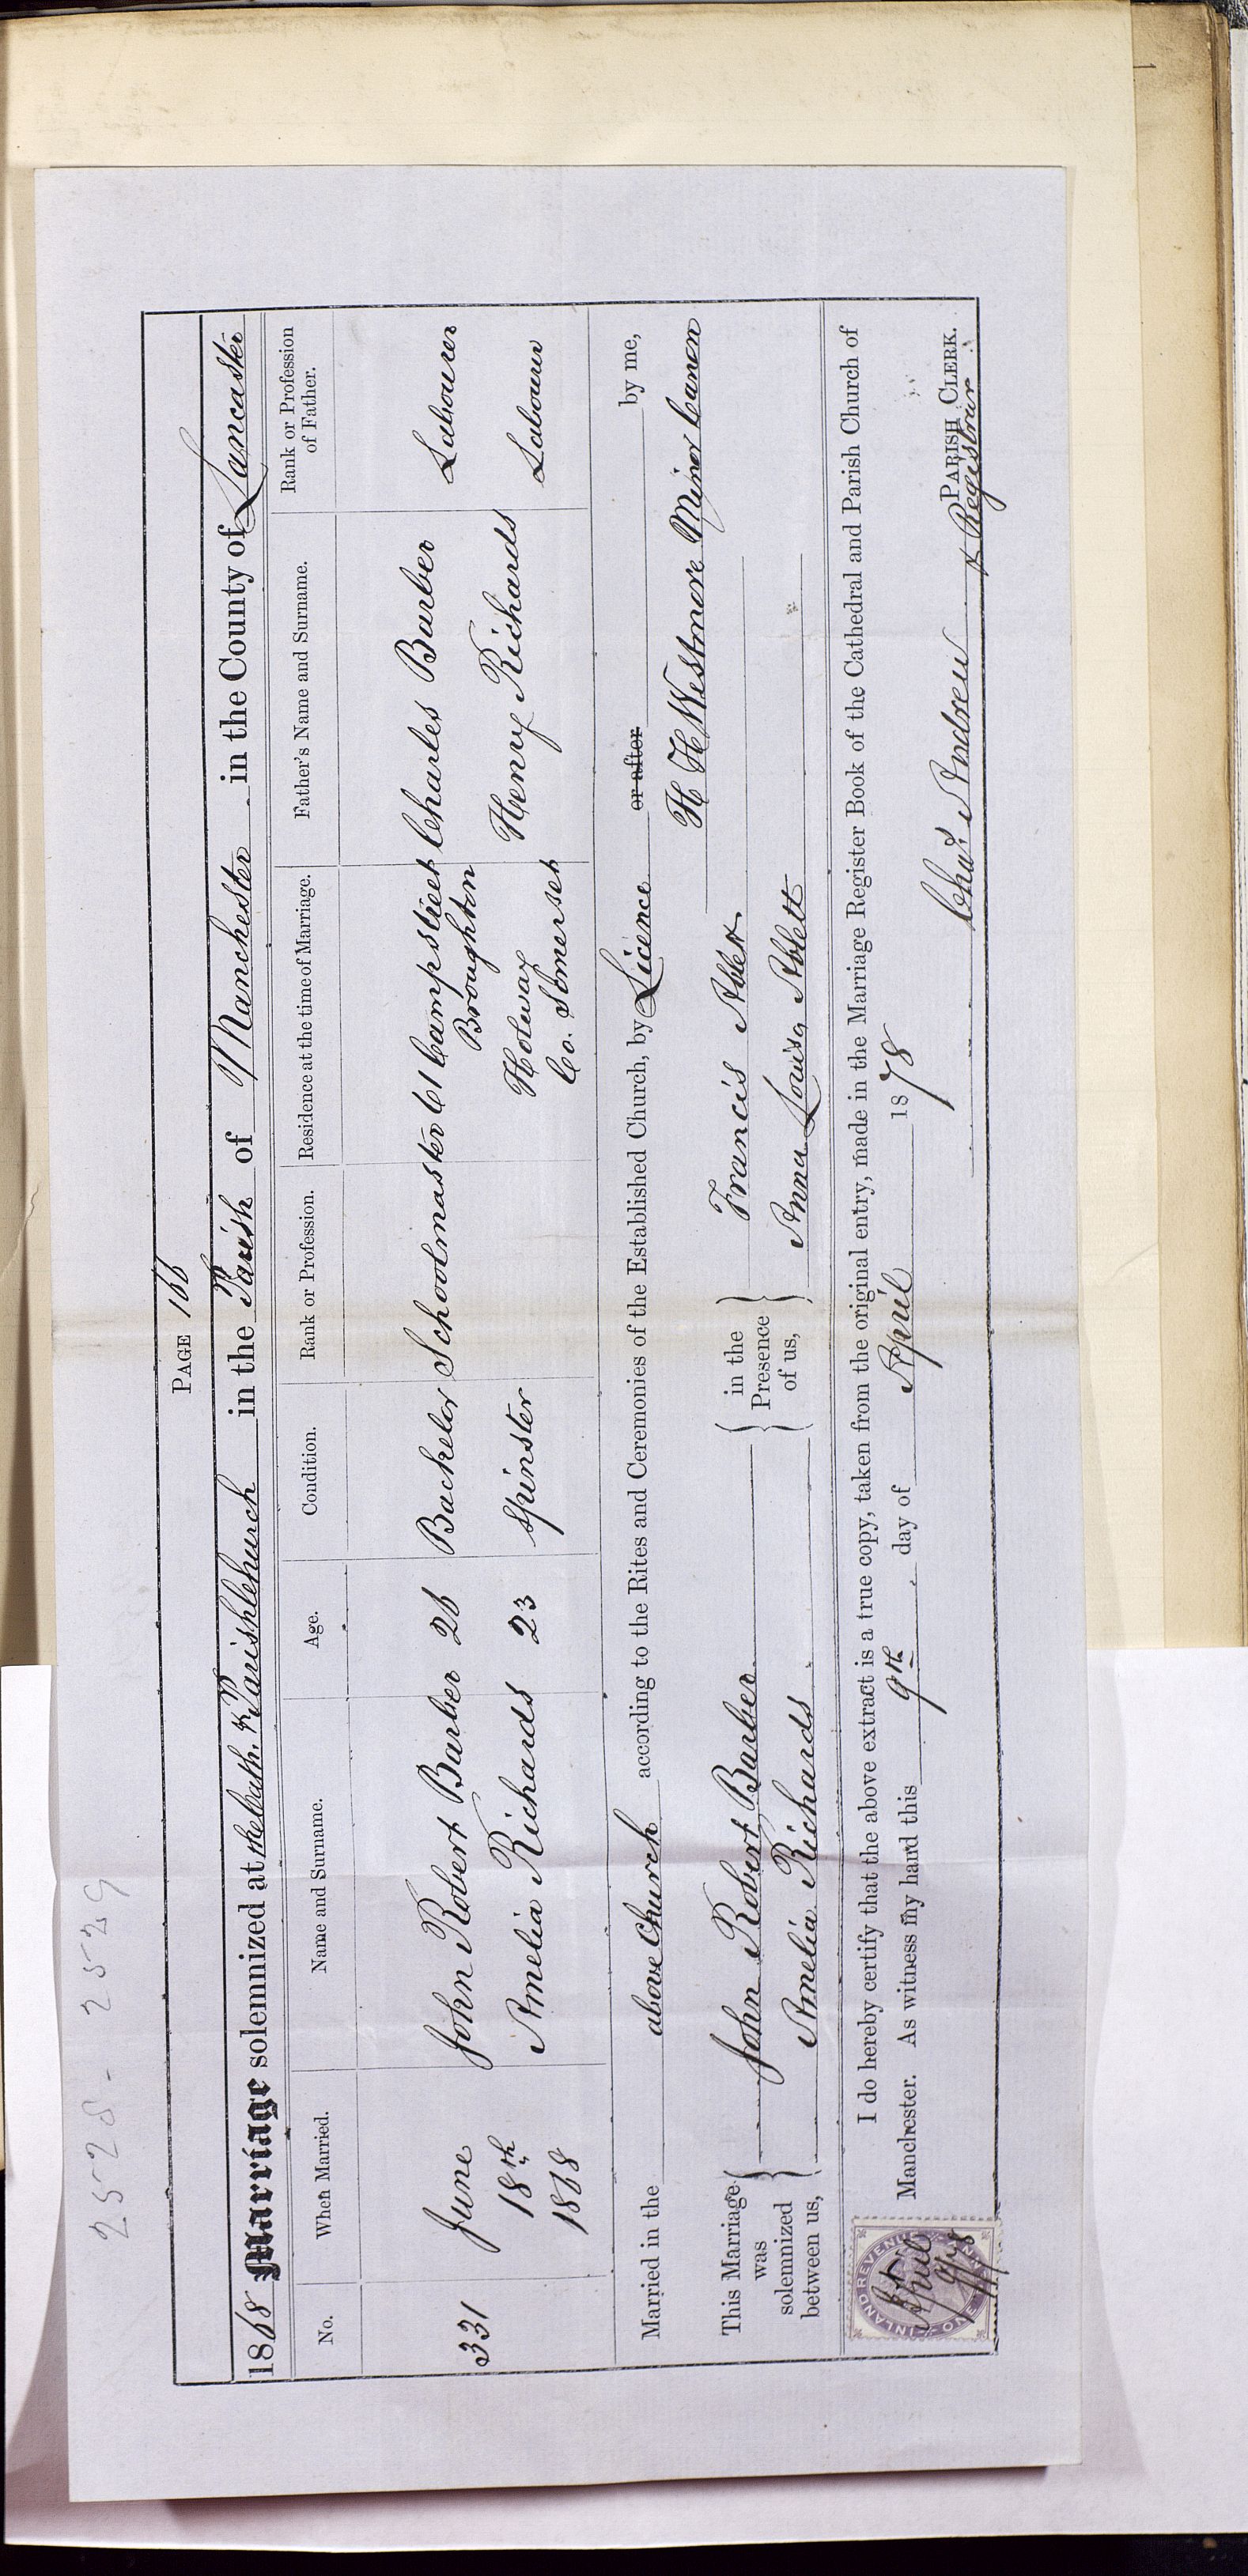 2528-2529
PAGE 166
1868 Marriage solemnized at the Cath. & Parish Church in the Parish of Manchester in the County of Lancaster
No. When Married. Name and Surname. Age. Condition. Rank or Profession. Residence at the time of Marriage. Father's Name and Surname. Rank or Profession of Father.
331 June 18th 1868
John Robert Barber 26 Bachelor Schoolmaster 61 Camp Street Broughton Charles Barber Labourer
Amelia Richards 23 Spinster Holway Co. Somerset Henry Richards Labourer
Married in the above Church according to the Rites and Ceremonies of the Established Church, by Licence or after by me,
H H Westmore Minor Canon
This Marriage was solemnized between us,
John Robert Barber
Amelia Richards
in the Presence of us,
Francis Ablett
Anna Louisa Ablett
I do hereby certify that the above extract is a true copy, taken from the original entry, made in the Marriage Register Book of the Cathedral and Parish Church of
Manchester. As witness my hand this 9th day of April 1878
Chas. Andrew PARISH CLERK.
& Registrar
INLAND REVENUE
ONE PENNY
April